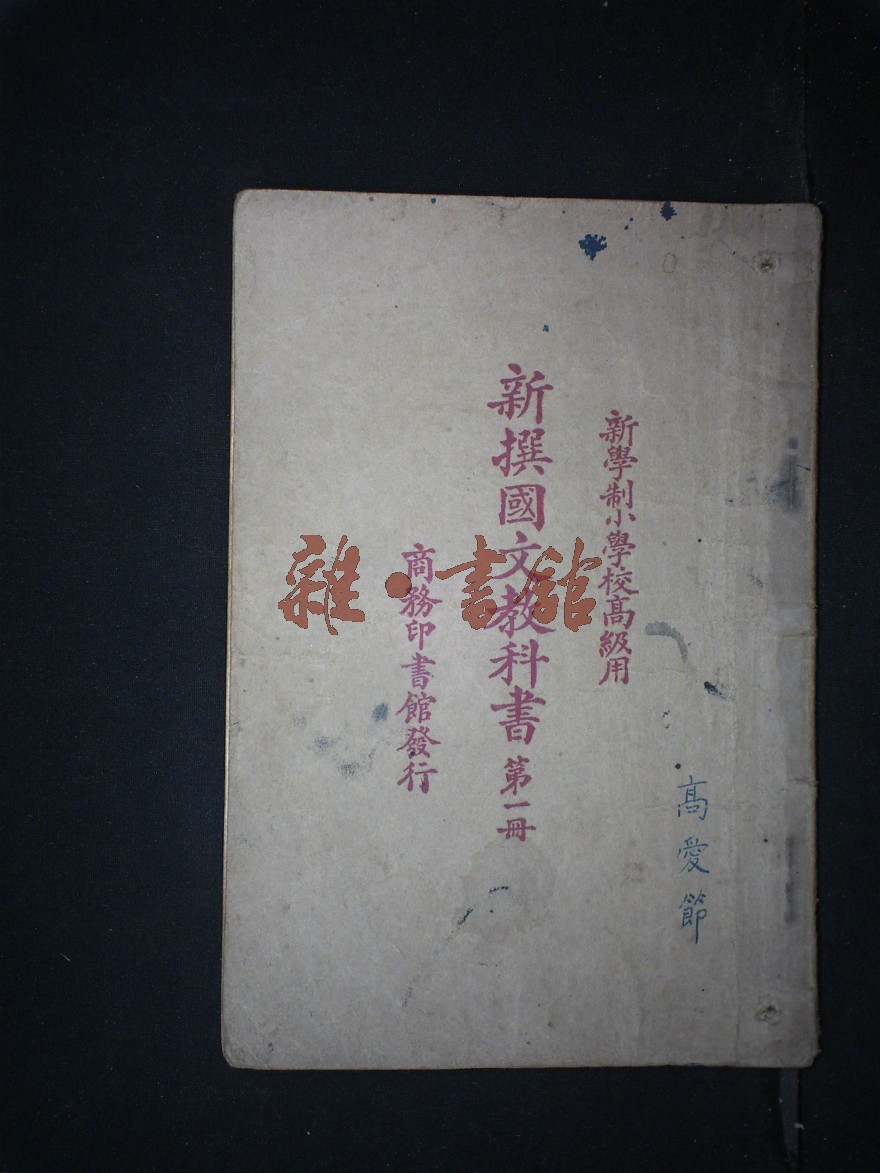 新學制小學校高級用
新撰國文教科書 第一冊
商務印書館發行
高愛節
雜·書館